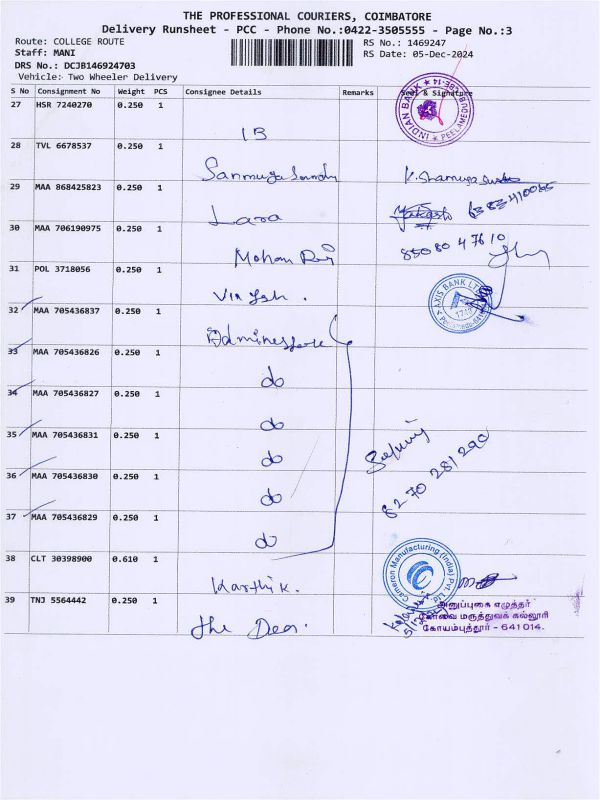 THE PROFESSIONAL COURIERS, COIMBATORE
Delivery Runsheet - PCC - Phone No.:0422-3505555 - Page No.:3
Route: COLLEGE ROUTE
RS No.: 1469247
Staff: MANI
RS Date: 05-Dec-2024
DRS No.: DCJB146924703
Vehicle: Two Wheeler Delivery
S No Consignment No Weight PCS Consignee Details Remarks Seal & Signature
27 HSR 7240270 0.250 1
INDIAN BANK
IB
28 TVL 6678537 0.250 1
29 MAA 868425823 0.250 1
Lara
30 MAA 706190975 0.250 1
Mohan
85080 47610
31 POL 3718056 0.250 1
AXIS BANK LTD
32 MAA 705436837 0.250 1
33 MAA 705436826 0.250 1
do
34 MAA 705436827 0.250 1
do
35 MAA 705436831 0.250 1
do
82 70 281290
36 MAA 705436830 0.250 1
do
37 MAA 705436829 0.250 1
do
38 CLT 30398900 0.610 1
Cameron Manufacturing (India) Pvt. Ltd
Karthik.
39 TNJ 5564442 0.250 1
அனுப்புகை எழுத்தர்
கோவை மருத்துவக் கல்லூரி
கோயம்புத்தூர் - 641 014.
the Dean.